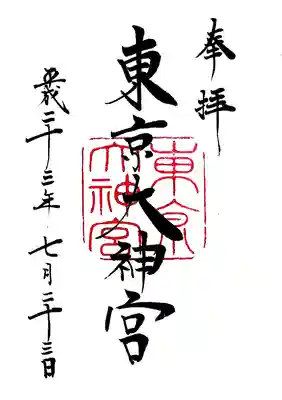 奉拝
東京大神宮
平成二十三年 七月二十三日
東京
大神宮